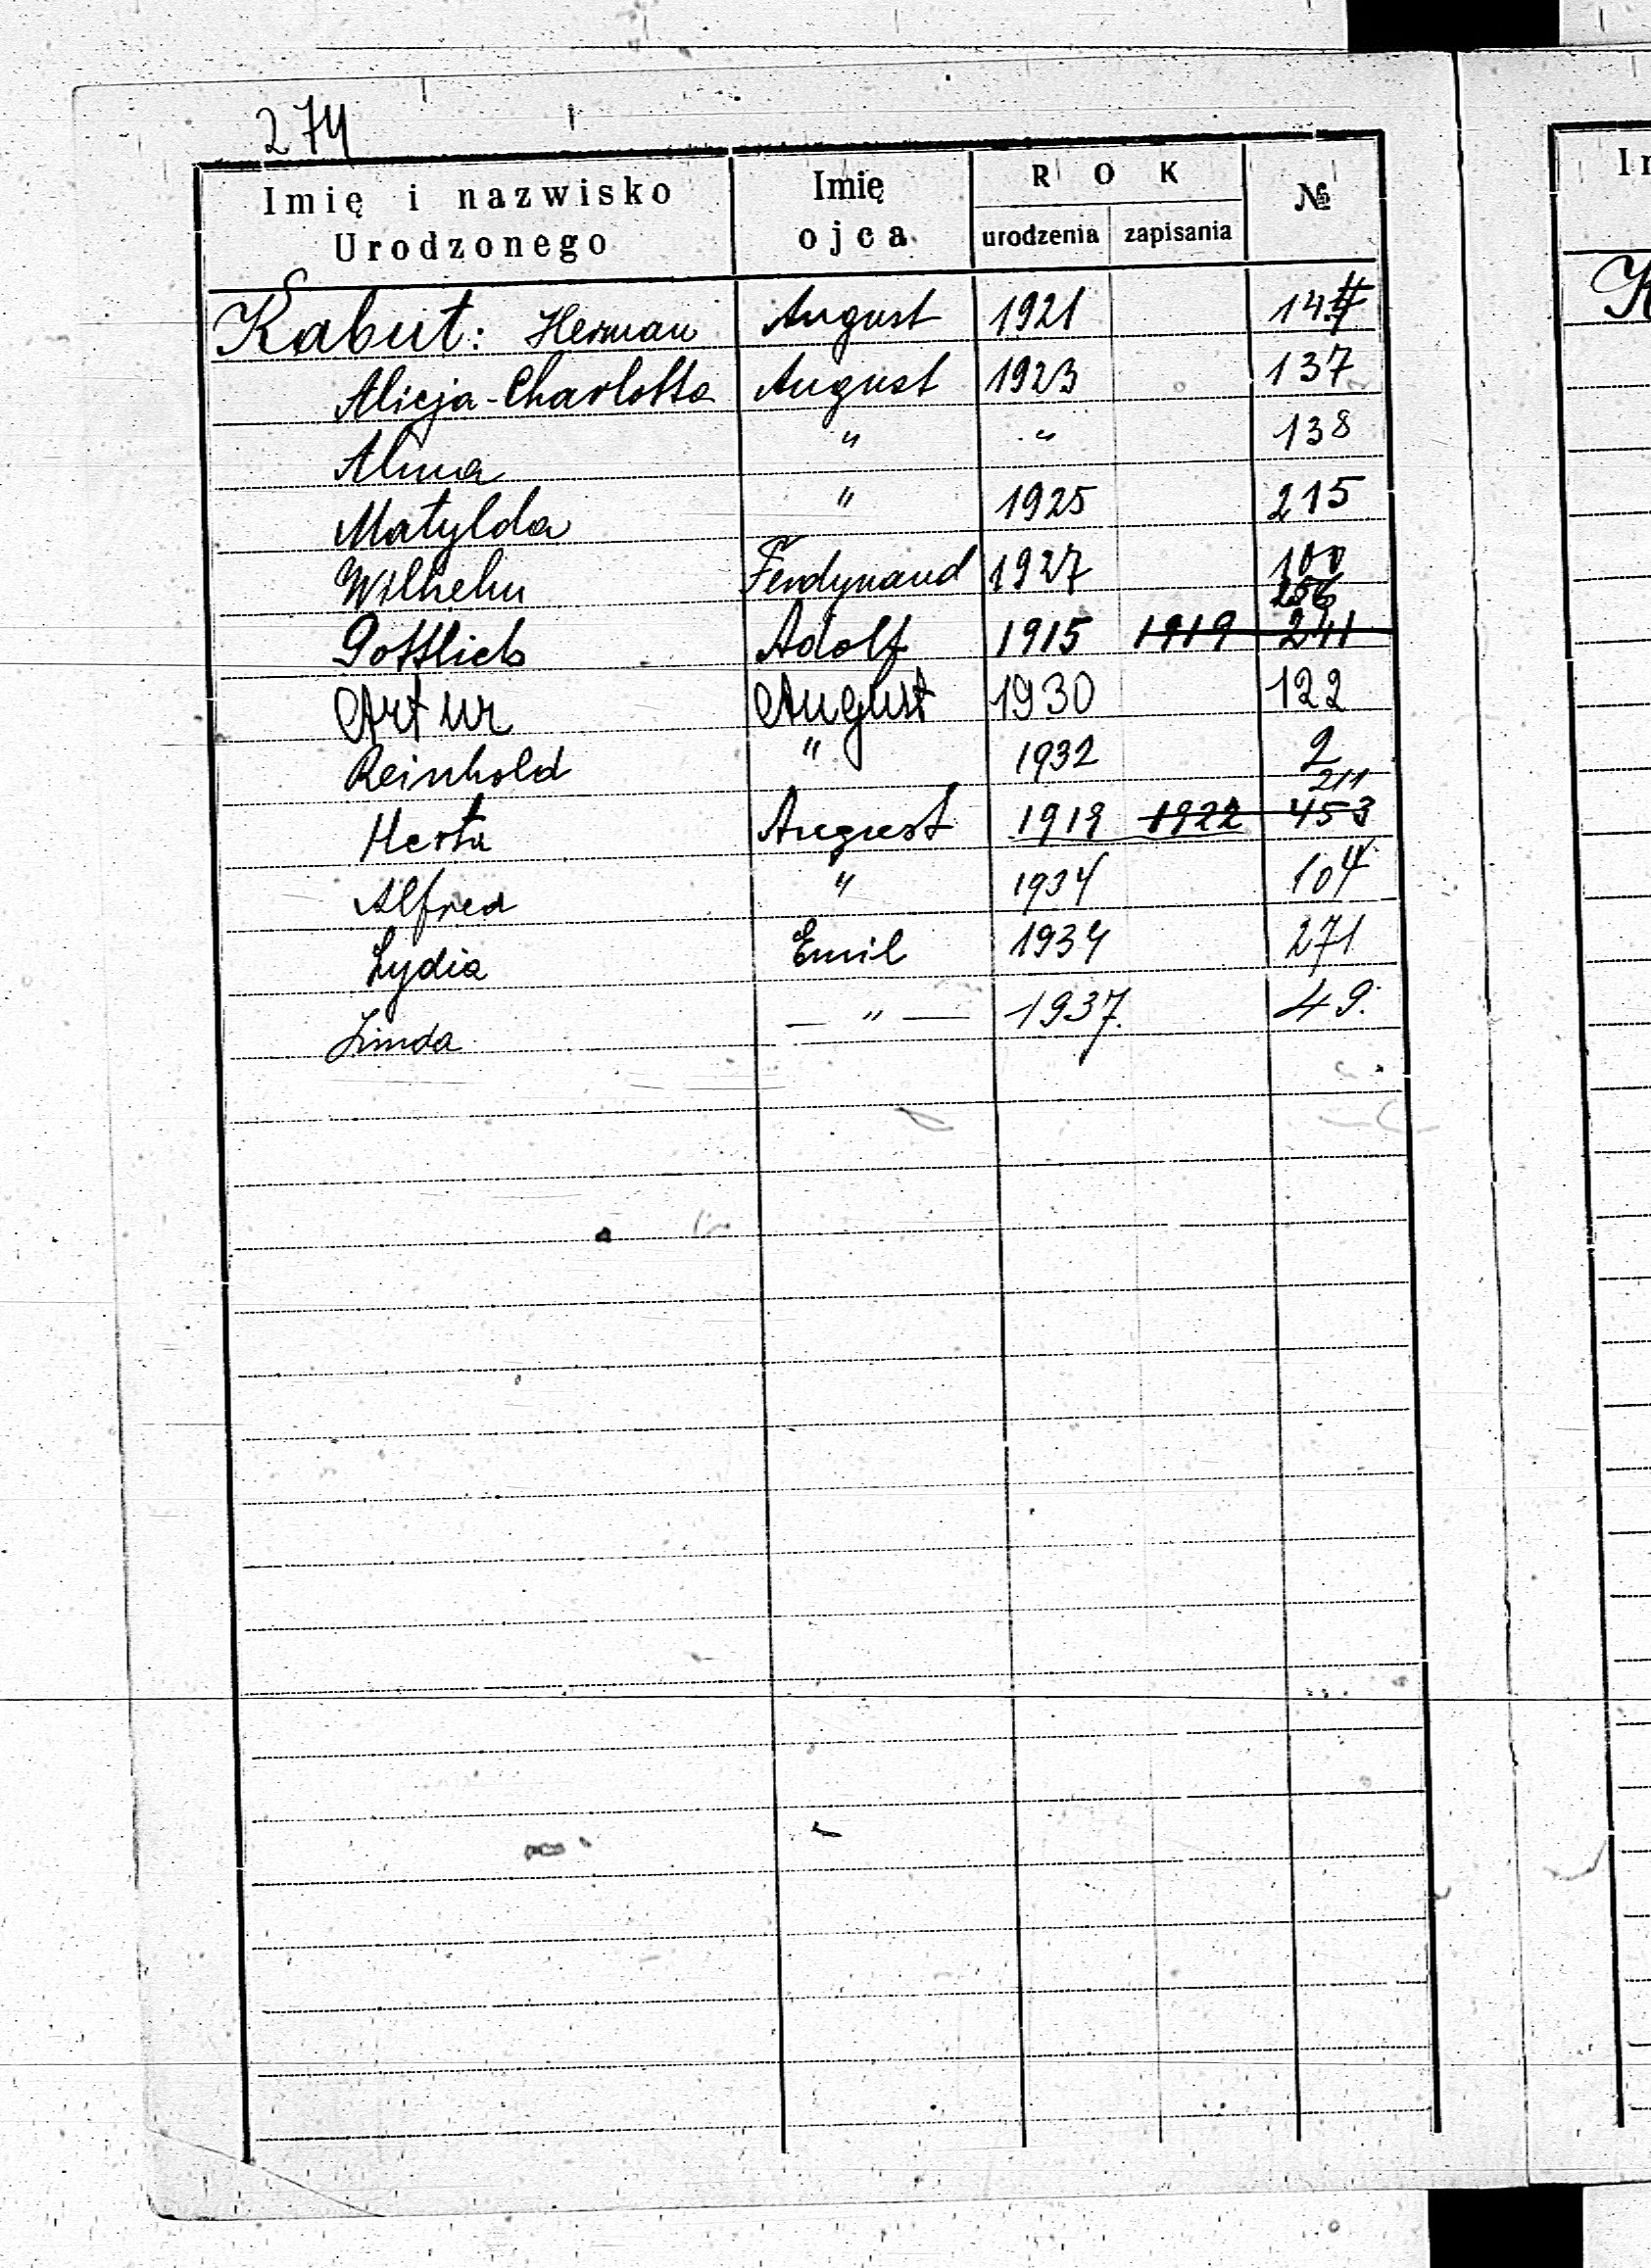 274
Imię i nazwisko Urodzonego Imię ojca ROK urodzenia zapisania №
Kabut: Herman August 1921
Alicja-Charlotta August 1923 137
Alma " " 138
Matylda " 1925 215
Wilhelm Ferdynand 1927 100
256
Gottlieb Adolf 1915 1919 241
Artur August 1930 122
Reinhold " 1932 2
211
Herta August 1919 1922 453
Alfred " 1934 104
Lydia Emil 1934 271
Linda — " — 1937. 49.
Im
K